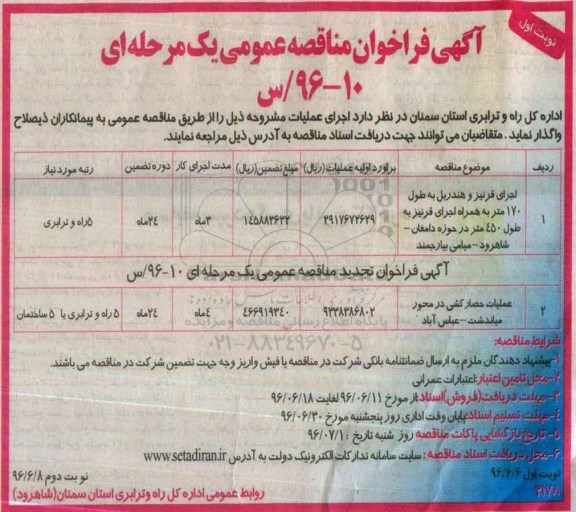 نوبت اول
آگهی فراخوان مناقصه عمومی یک مرحله ای
۱۰-۹۶/س
اداره کل راه و ترابری استان سمنان در نظر دارد اجرای عملیات مشروحه ذیل را از طریق مناقصه عمومی به پیمانکاران ذیصلاح
واگذار نماید . متقاضیان می توانند جهت دریافت اسناد مناقصه به آدرس ذیل مراجعه نمایند.
ردیف موضوع مناقصه برآورد اولیه عملیات (ریال) مبلغ تضمین(ریال) مدت اجرای کار دوره تضمین رتبه مورد نیاز
۱ اجرای قرنیز و هندریل به طول ۱۷۰ متر به همراه اجرای قرنیز به طول ۴۵۰ متر در حوزه دامغان - شاهرود - میامی بیارجمند ۲۹۱۷۶۷۲۶۲۹ ۱۴۵۸۸۳۶۳۲ ۳ماه ۲۴ماه ۵راه و ترابری
آگهی فراخوان تجدید مناقصه عمومی یک مرحله ای ۱۰-۹۶/س
۲ عملیات حصار کشی در محور میاندشت - عباس آباد ۹۳۳۸۳۸۶۸۰۲ ۴۶۶۹۱۹۳۴۰ ۴ماه ۲۴ماه ۵ راه و ترابری یا ۵ ساختمان
۰۲۱-۸۸۳۴۹۶۷۰-۵
شرایط مناقصه:
۱-پیشنهاد دهندگان ملزم به ارسال ضمانتنامه بانکی شرکت در مناقصه یا فیش واریز وجه جهت تضمین شرکت در مناقصه می باشند.
۲-محل تامین اعتبار:اعتبارات عمرانی
۳-مهلت دریافت(فروش)اسناد:از مورخ ۹۶/۰۶/۱۱ لغایت ۹۶/۰۶/۱۸
۴-مهلت تسلیم اسناد:پایان وقت اداری روز پنجشنبه مورخ ۹۶/۰۶/۳۰
۵-تاریخ بازگشایی پاکات مناقصه روز شنبه تاریخ : ۹۶/۰۷/۱
۶-محل دریافت اسناد مناقصه : سایت سامانه تدارکات الکترونیک دولت به آدرس www.setadiran.ir
نوبت اول ۹۶/۶/۶ نوبت دوم ۹۶/۶/۸
۲۱۷۸ روابط عمومی اداره کل راه وترابری استان سمنان(شاهرود)